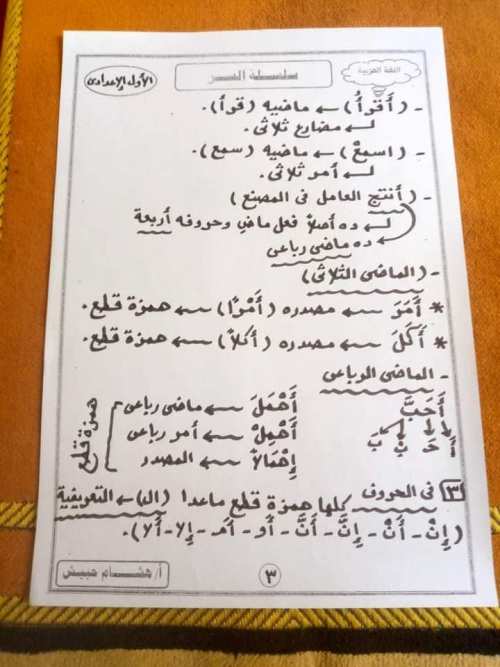 اللغة العربية
سلسلة السر
الأول الإعدادى
- (أَقرأُ) ← ماضيه (قرأ).
↳ مضارع ثلاثى.
- (اسمعْ) ← ماضيه (سمع).
↳ أمر ثلاثى.
- (أنتج العامل فى المصنع)
↳ ده أصلاً فعل ماضٍ وحروفه أربعة
ده ماضى رباعى
- (الماضى الثلاثى)
* أَمَرَ ← مصدره (أَمْرًا) ← همزة قطع.
* أَكَلَ ← مصدره (أكلاً) ← همزة قطع.
- الماضى الرباعى
أَحَبَّ
أَ حَ بْ بَ
أَهْمَلَ ← ماضى رباعى
أَهْمِلْ ← أمر رباعى
إِهْمَالاً ← المصدر
همزة قطع
٣ فى الحروف كلها همزة قطع ماعدا (ال) ← التعريفية
(إِنْ - أَنْ - إِنَّ - أَنَّ - أَو - أَم - إِلا - أَلا).
أ/ هشام حبيش
٣